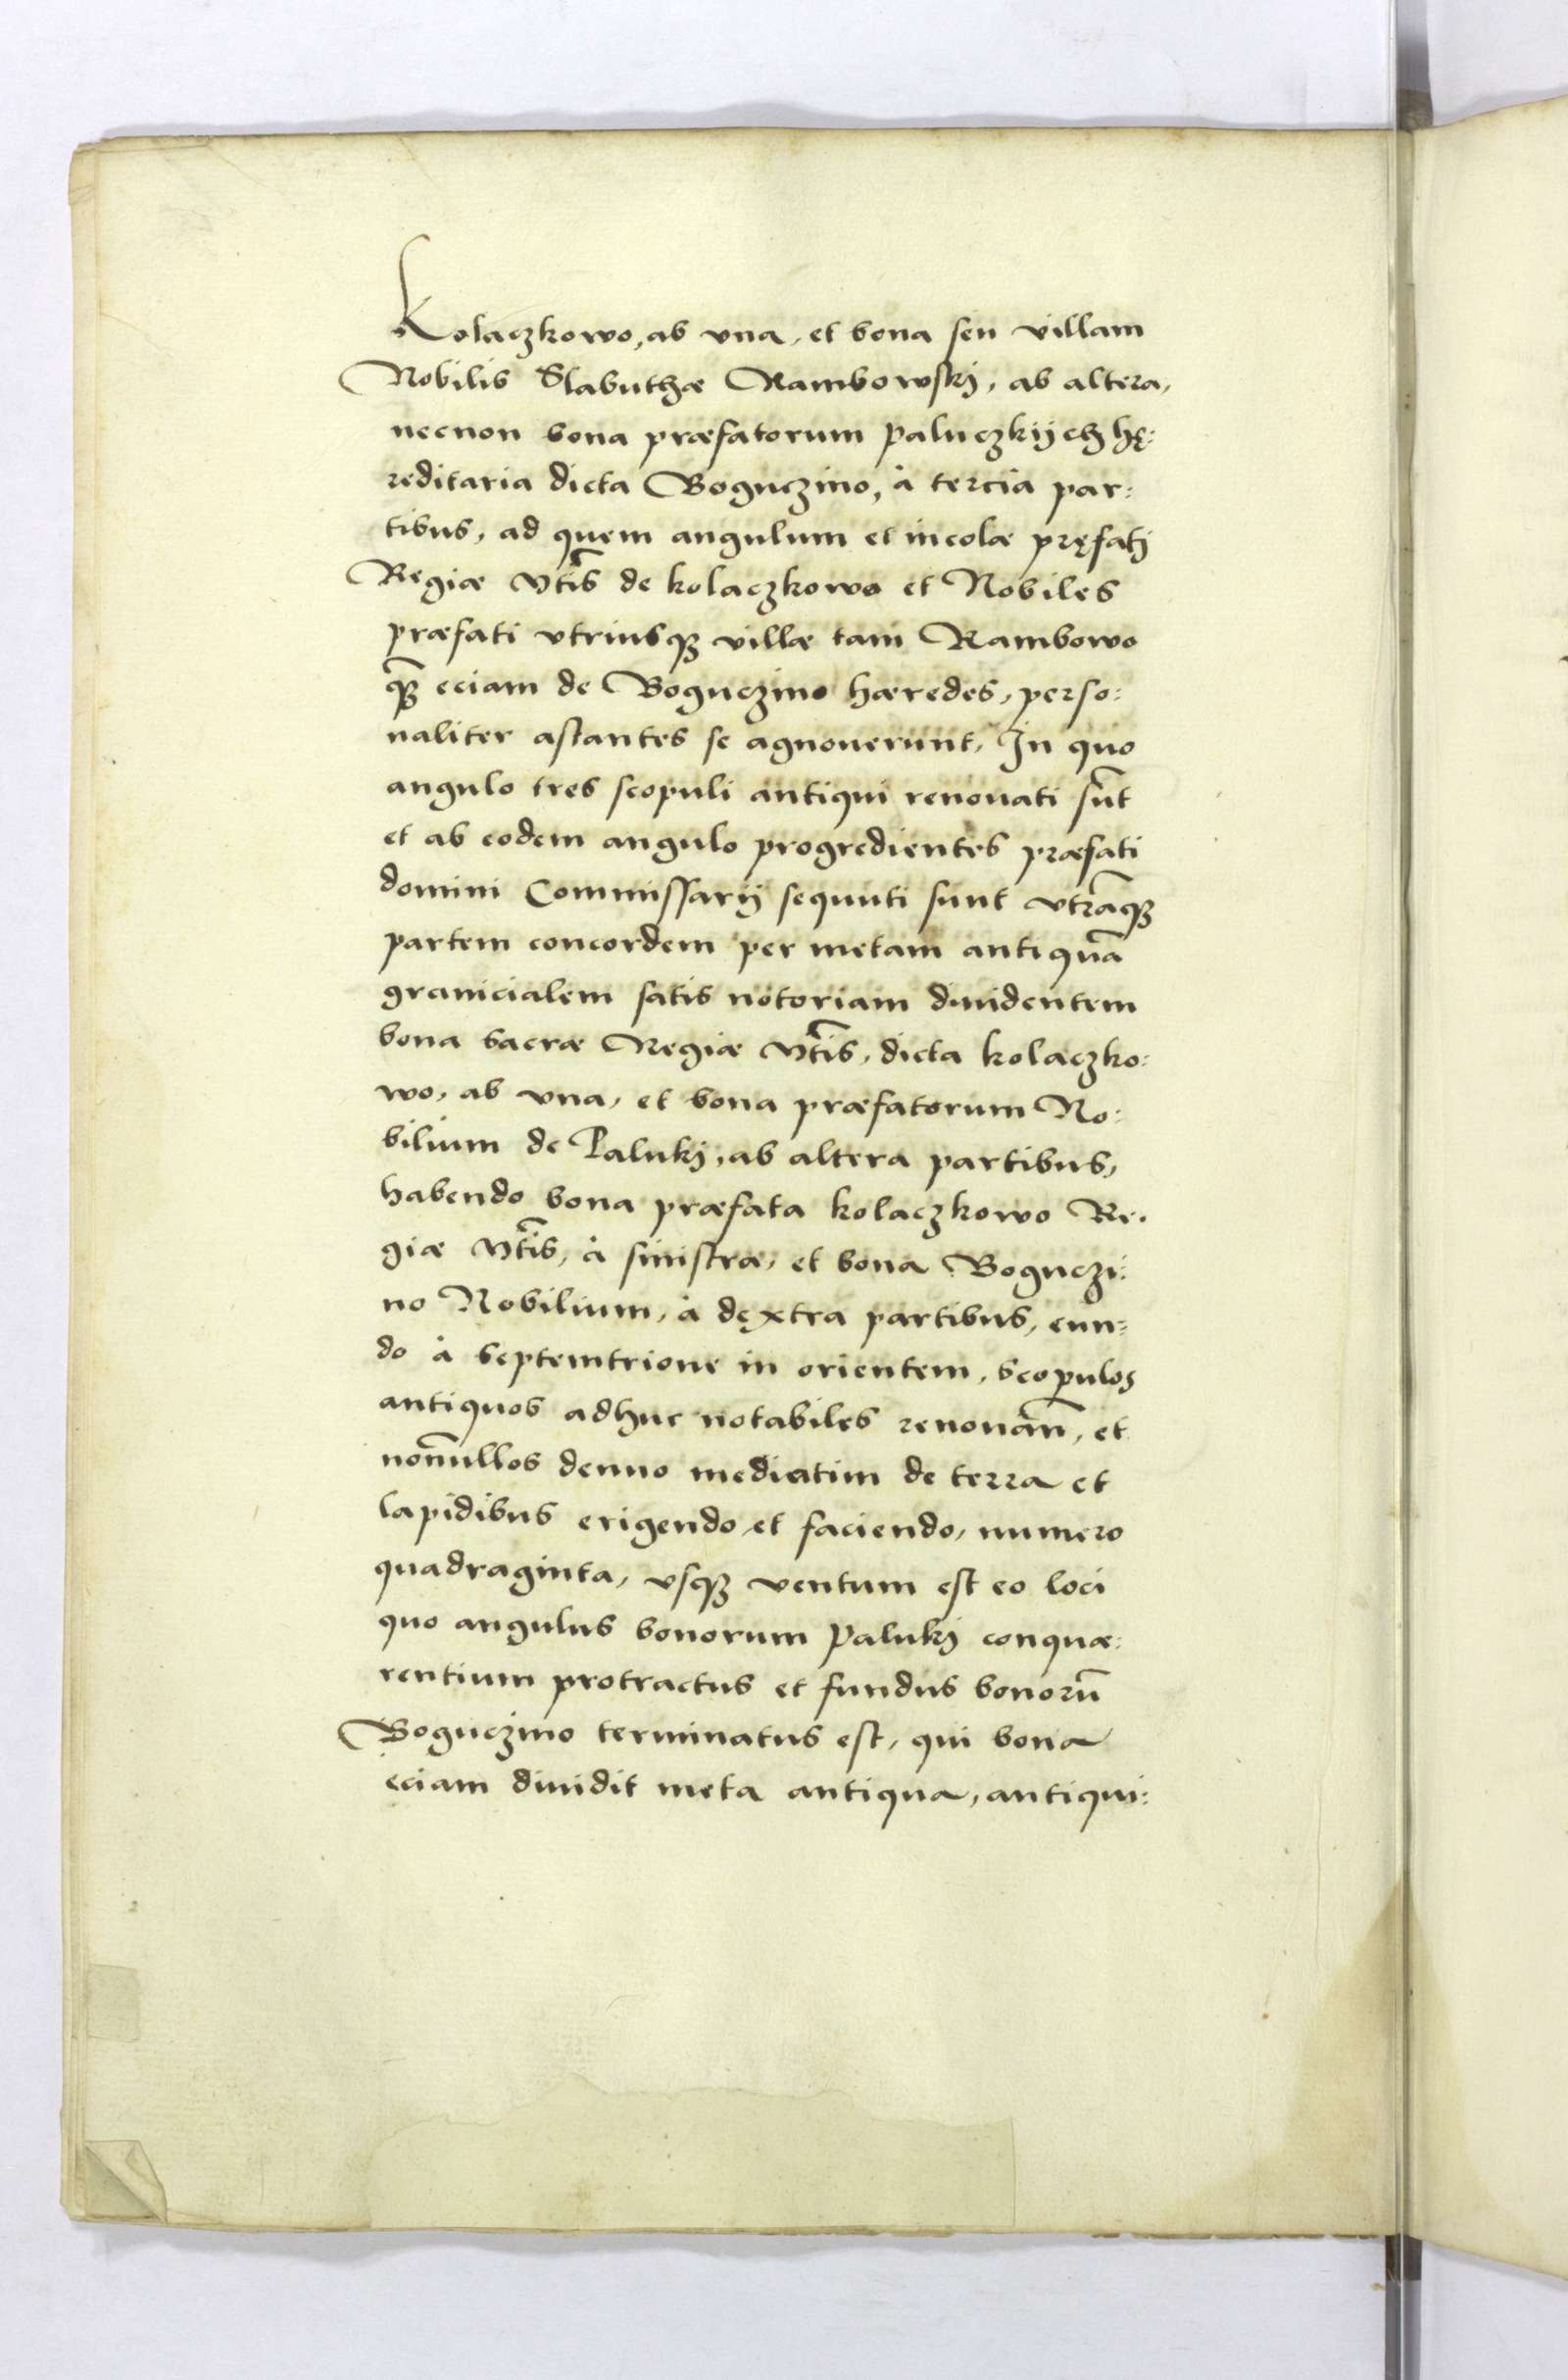 Kolaczkowo, ab vna, et bona seu villam
Nobilis Slabuthæ Rambowskj, ab altera,
necnon bona præfatorum paluczkijch hę:
reditaria dicta Boguczino, à tercia par:
tibus, ad quem angulum et incolæ pręfatj
Regiæ Mtis de kolaczkowo et Nobiles
præfati vtriusqꝫ villæ tam Rambowo
qꝫ eciam de Boguczino hæredes, perso:
naliter astantes se agnouerunt, In quo
angulo tres scopuli antiqui renouati sūt
et ab eodem angulo progredientes præfati
domini Commissarij sequuti sunt vtrāqꝫ
partem concordem per metam antiquā
granicialem satis notoriam diuidentem
bona sacræ Regiæ Mtis, dicta kolaczko:
wo, ab vna, et bona præfatorum No:
bilium de Palukj, ab altera partibus,
habendo bona præfata kolaczkowo Re:
giæ Mtis, à sinistra, et bona Boguczi:
no Nobilium, à dęxtra partibus, eun:
do à septemtrione in orientem, scopulos
antiquos adhuc notabiles renouañ, et
nōnullos denuo mediatim de terra et
lapidibus erigendo et faciendo, numero
quadraginta, vsqꝫ ventum est eo loci
quo angulus bonorum palukj conquæ:
rentium protractus et fundus bonorū
Boguczino terminatus est, qui bona
eciam diuidit meta antiqua, antiqui: